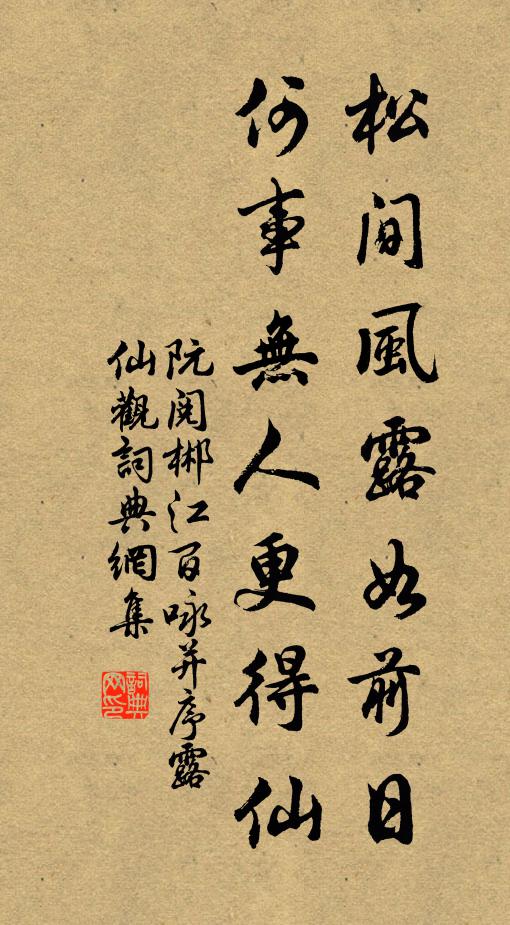 松間風露如前日
何事無人更得仙
阮閱郴江百咏并序露
仙觀詞典網集
詞典
网印